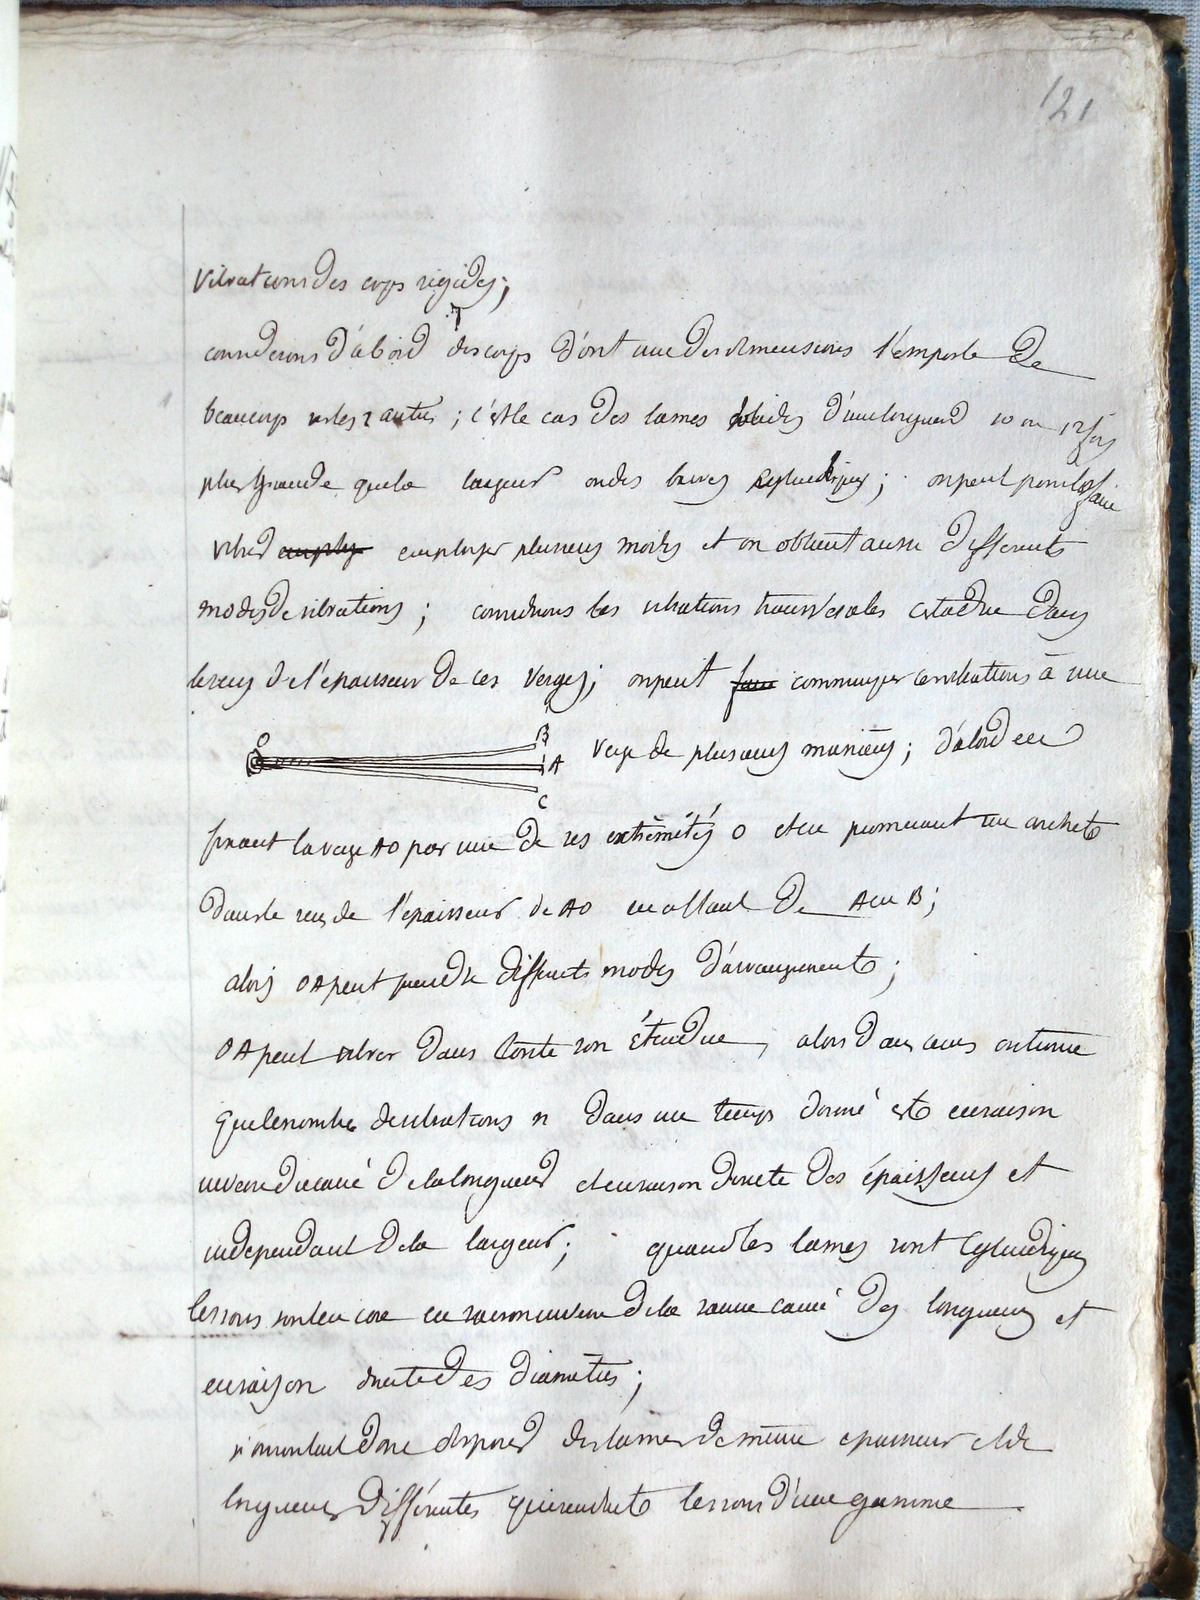 121
vibrations des corps rigides;
considerons d'abord des corps dont une des dimensions l'emporte de
beaucoup sur les 2 autres; c'est le cas des lames solides d'une longueur 10 ou 12 fois
plus grande que la largeur ou des barres cylindriques; on peut pour les faire
vibrer employer plusieurs modes et on obtient aussi differents
modes de vibrations; considerons les vibrations transversales c'est a dire dans
le sens de l'épaisseur de ces verges; on peut faire communiquer ces vibrations à une
O B A C verge de plusieurs manières; d'abord en
fixant la verge AO par une de ses extrêmités O et en promenant un archet
dans le sens de l'épaisseur de AO en allant de A en B;
alors OA peut prendre differents modes d'arrangements;
OA peut vibrer dans toute son étendue, alors dans ce cas on trouve
que le nombre de vibrations n dans un temps donné est en raison
inverse du carré de la longueur et en raison directe des épaisseurs et
independant de la largeur; quand les lames sont cylindriques
les sons sont encore en raison inverse de la racine carré des longueurs et
en raison directe des diamètres;
si on voulait donc disposer des lames de même epaisseur et de
longueurs différentes qui rendent les sons d'une gamme